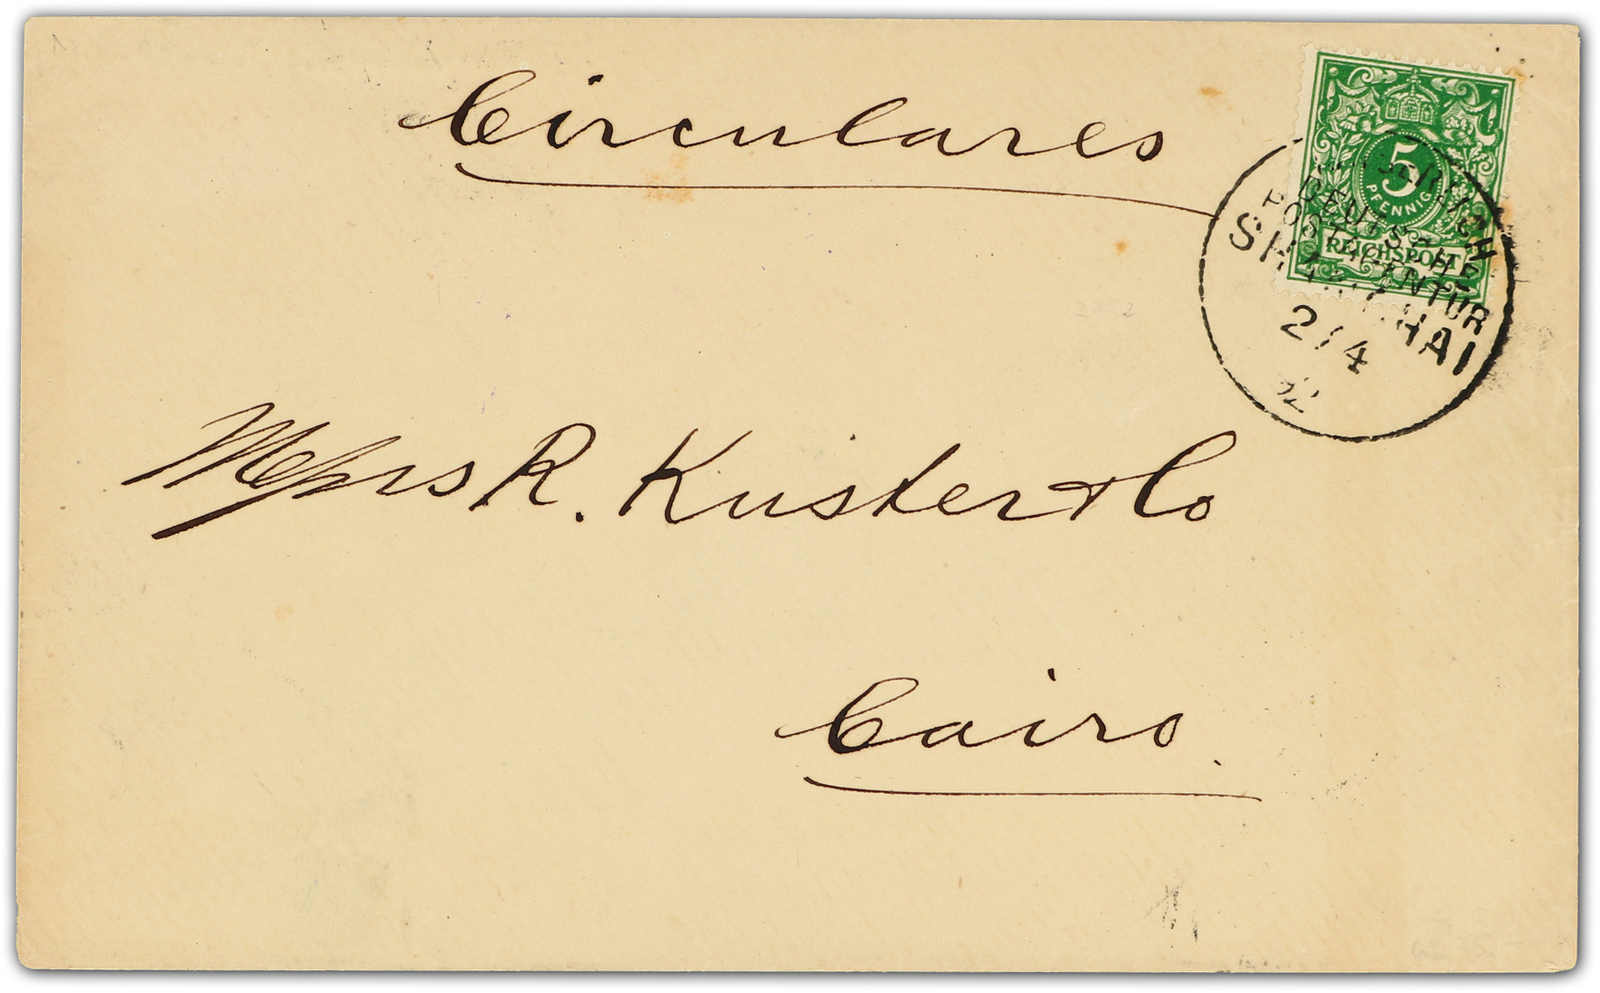 Circulares
5
PFENNIG
REICHSPOST
DEUTSCHE
POSTAGENTUR
SHANGHAI
2/4
92
Messrs R. Kuster & Co
Cairo.